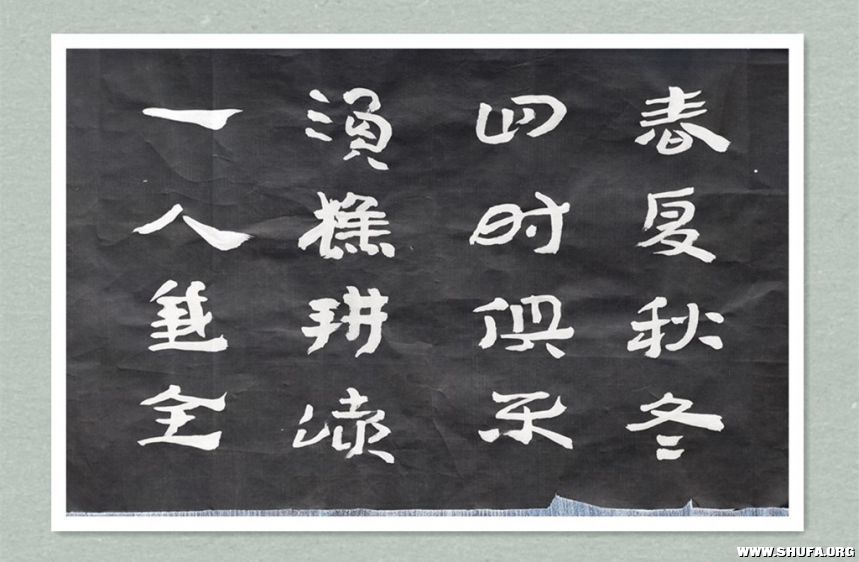 春夏秋冬
四时俱乐
渔樵耕读
一人兼全
WWW.SHUFA.ORG